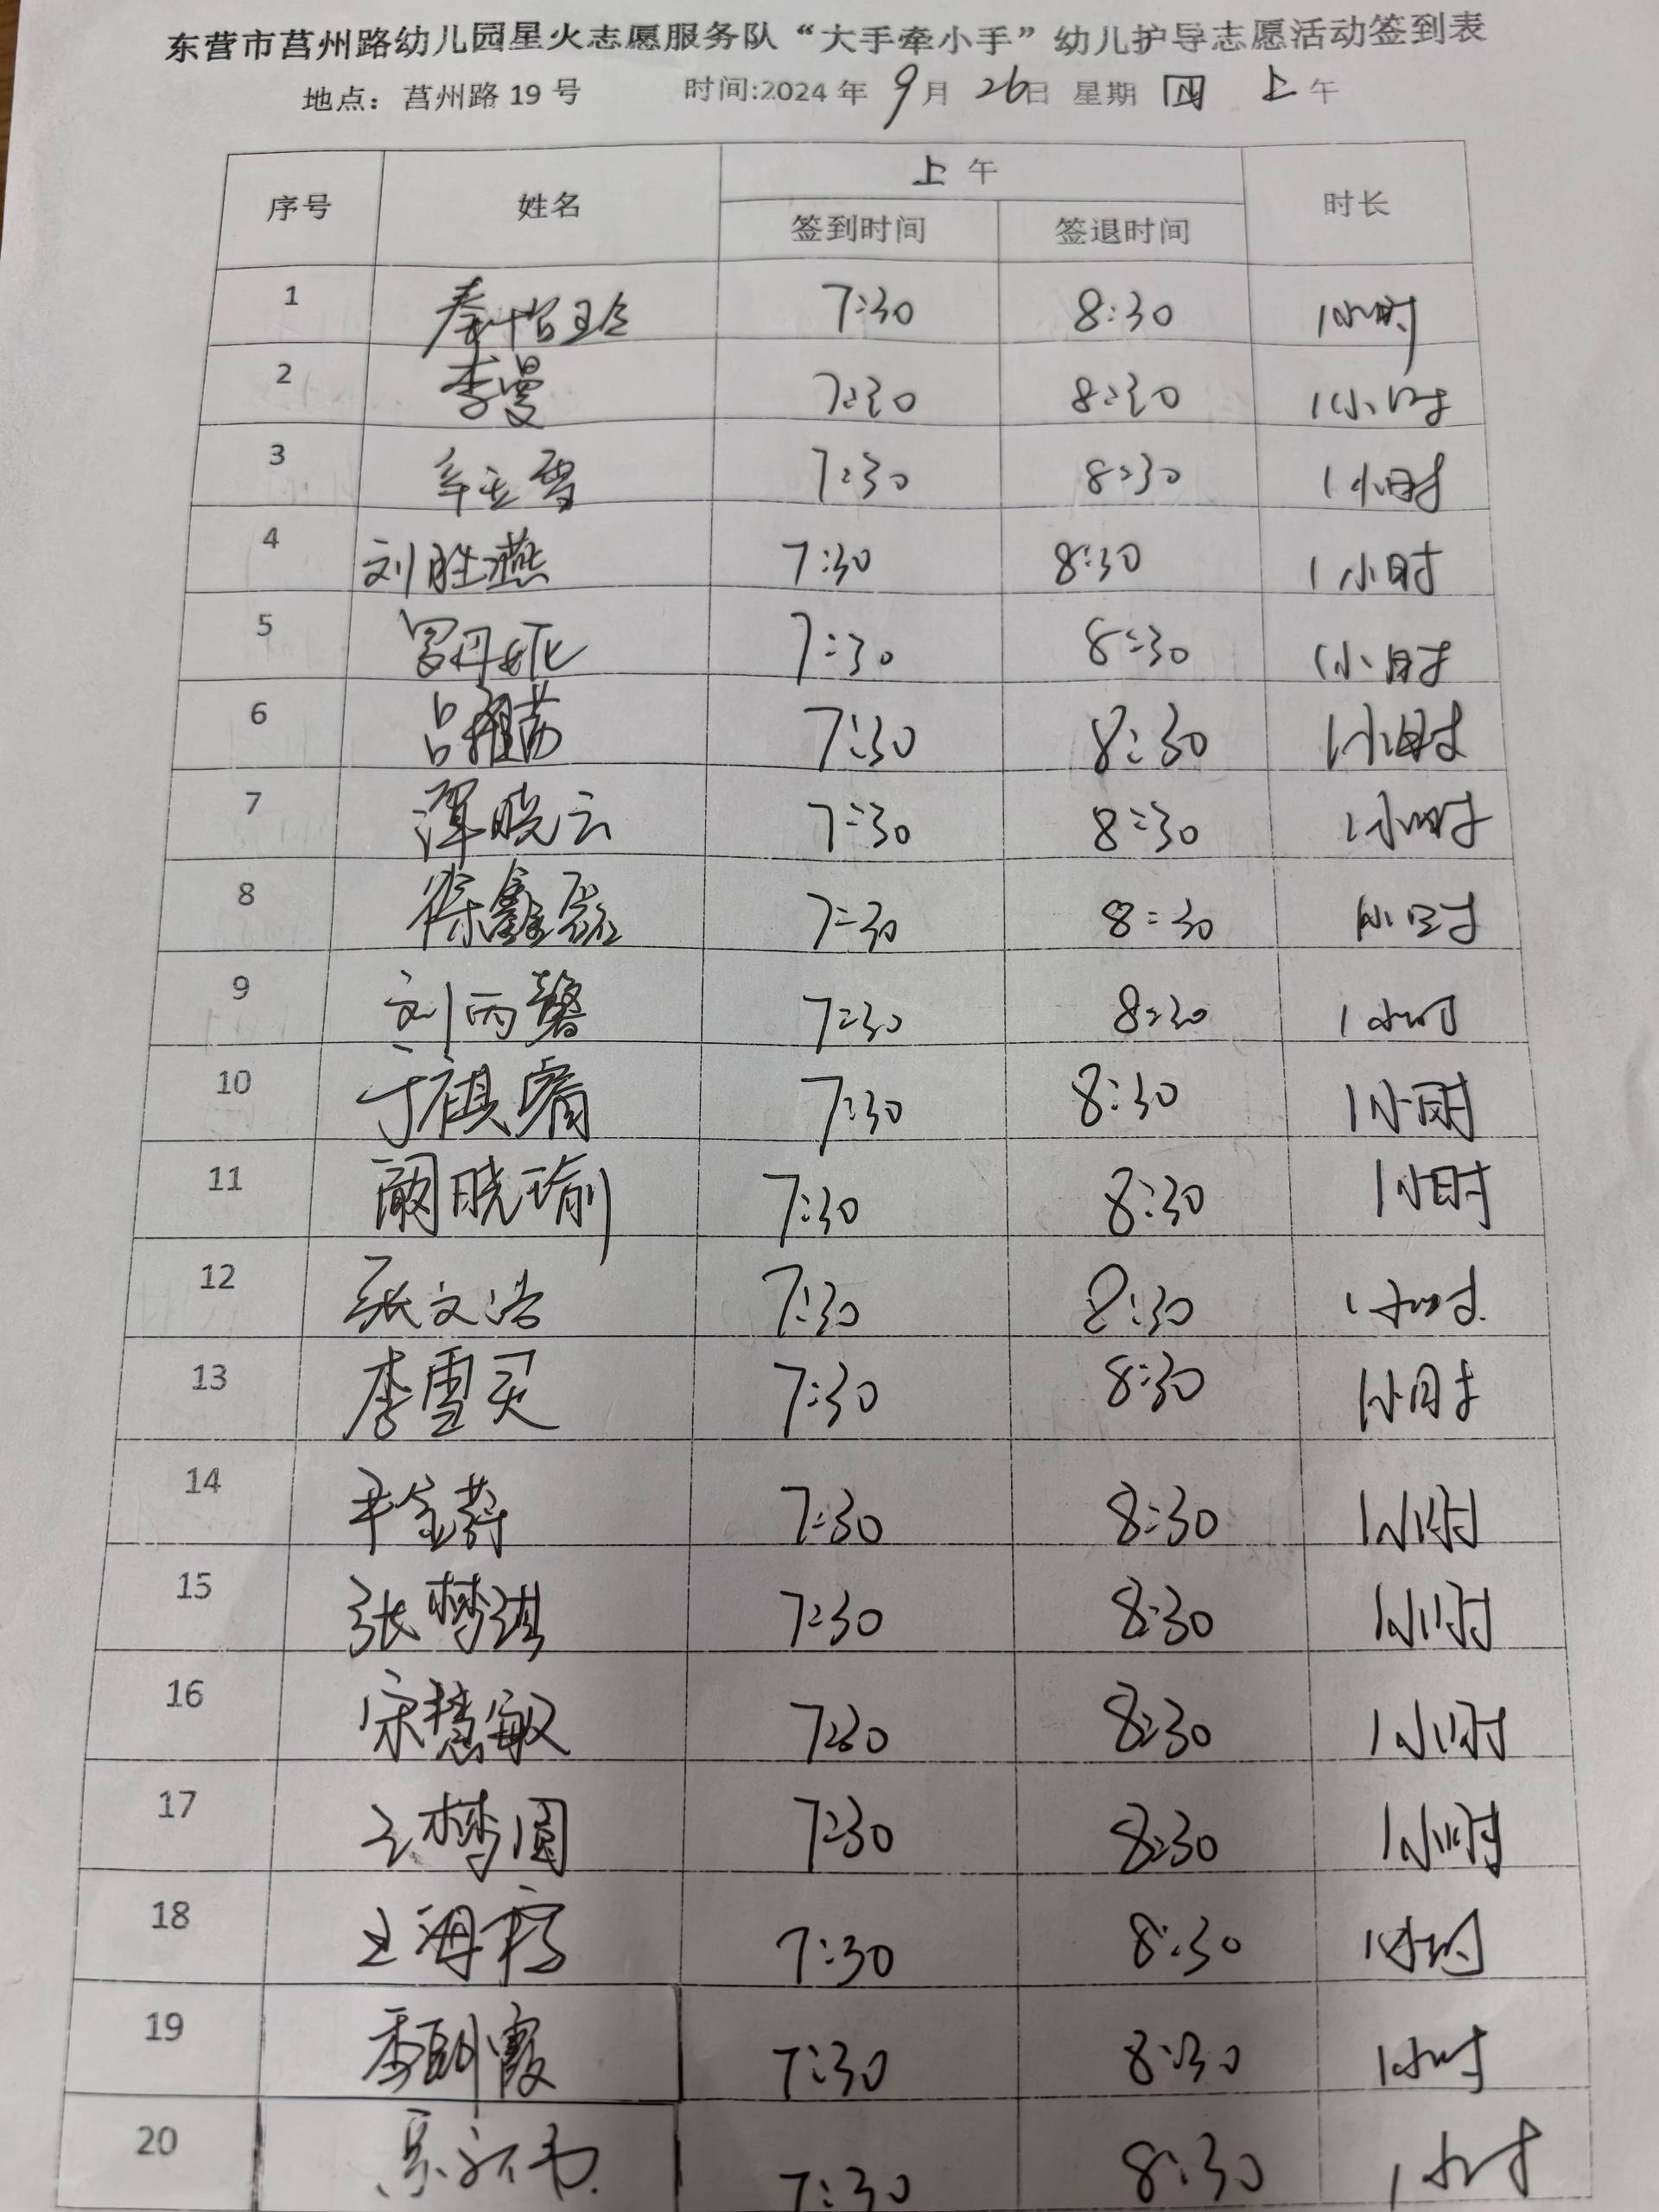 东营市莒州路幼儿园星火志愿服务队“大手牵小手”幼儿护导志愿活动签到表
地点：莒州路 19 号 时间:2024 年 9 月 26 日 星期 四 上 午
序号 姓名 上 午 时长
签到时间 签退时间
1 7:30 8:30 1小时
2 李曼 7:30 8:30 1小时
3 7:30 8:30 1小时
4 刘胜燕 7:30 8:30 1小时
5 7:30 8:30 1小时
6 7:30 8:30 1小时
7 晓云 7:30 8:30 1小时
8 徐鑫磊 7:30 8:30 1小时
9 刘丙馨 7:30 8:30 1小时
10 丁祺 7:30 8:30 1小时
11 阚晓瑜 7:30 8:30 1小时
12 张文浩 7:30 8:30 1小时
13 李雪灵 7:30 8:30 1小时
14 7:30 8:30 1小时
15 张梦琪 7:30 8:30 1小时
16 宋慧敏 7:30 8:30 1小时
17 王梦圆 7:30 8:30 1小时
18 王海 7:30 8:30 1小时
19 霞 7:30 8:30 1小时
20 7:30 8:30 1小时